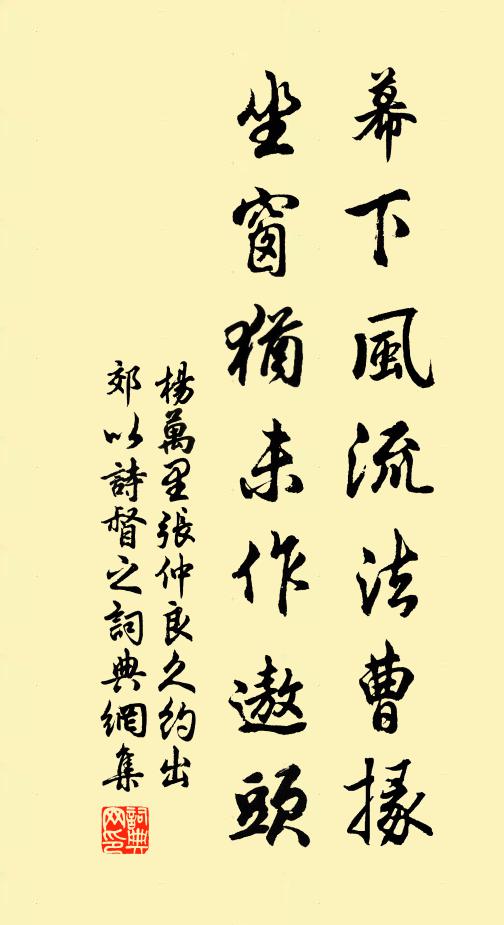 幕下風流法曹掾
坐窗猶未作遨頭
楊萬里張仲良久約出
郊以詩督之詞典網集
詞典網印